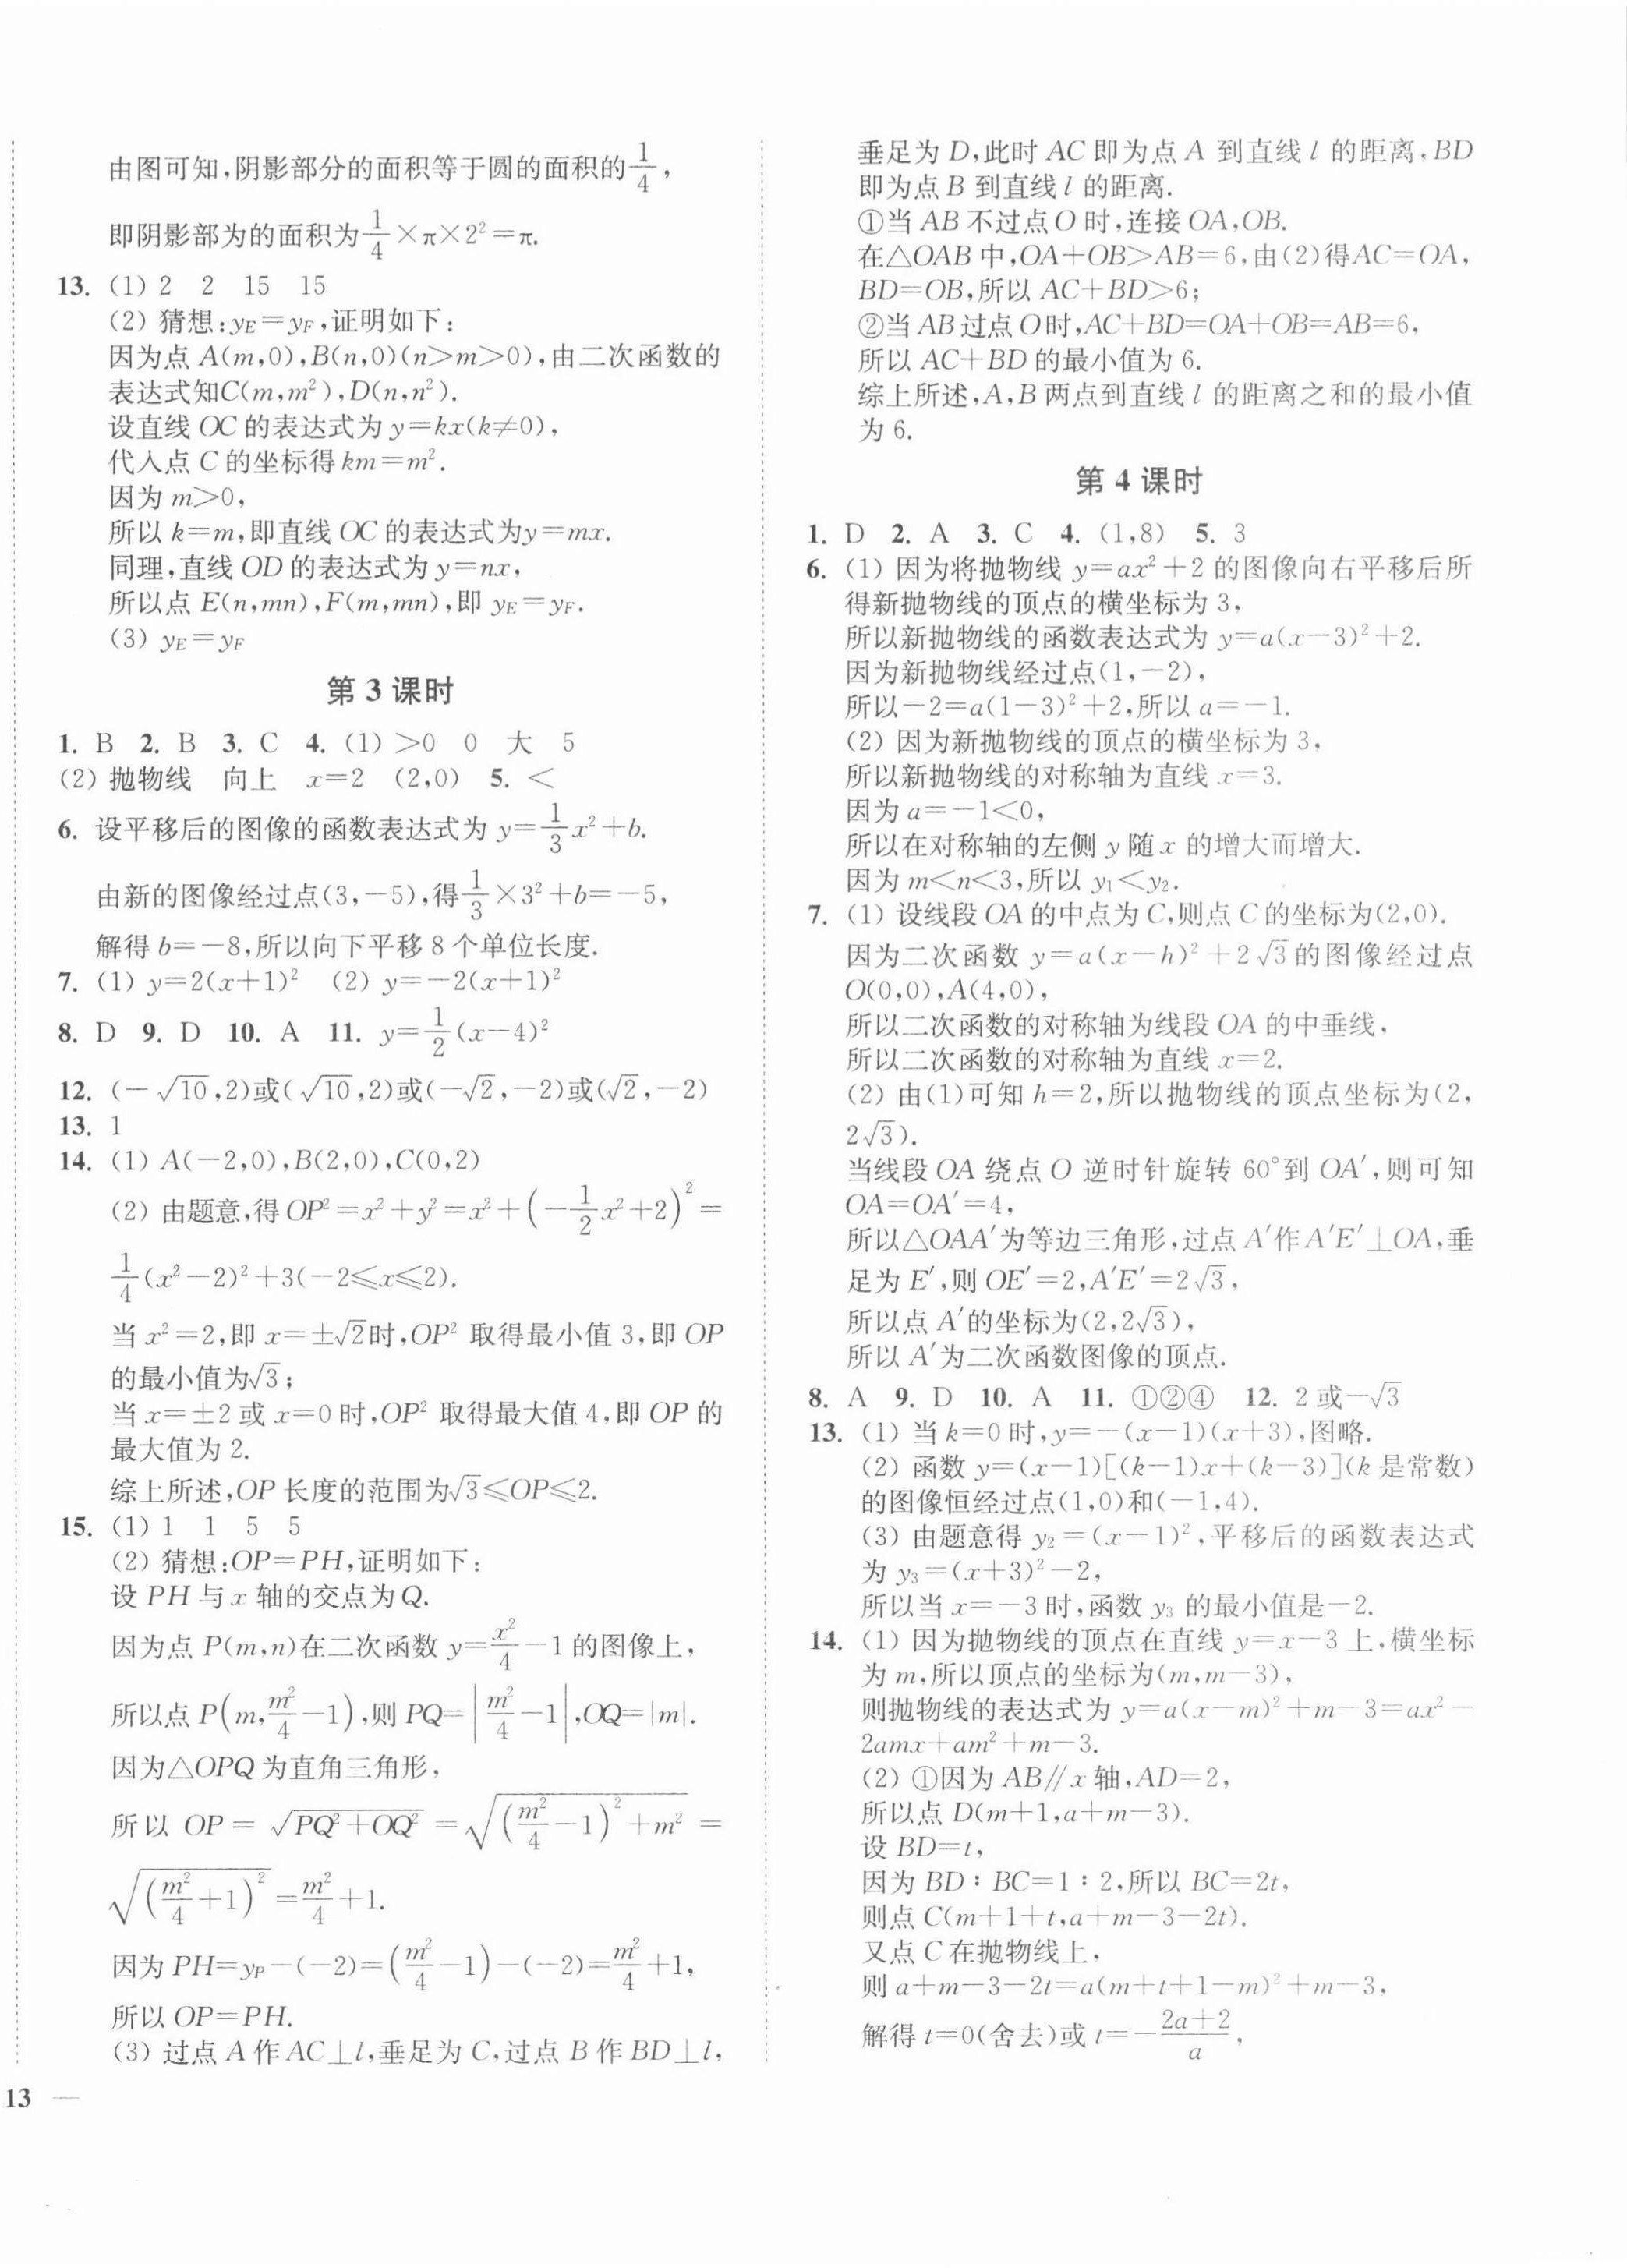 由图可知,阴影部分的面积等于圆的面积的1/4,
即阴影部为的面积为1/4×π×2²=π.
13. (1) 2 2 15 15
(2) 猜想:y_E=y_F,证明如下:
因为点 A(m,0),B(n,0)(n>m>0),由二次函数的
表达式知C(m,m²),D(n,n²).
设直线 OC 的表达式为 y=kx(k≠0),
代入点 C 的坐标得 km=m².
因为 m>0,
所以 k=m,即直线 OC 的表达式为y=mx.
同理,直线 OD 的表达式为 y=nx,
所以点 E(n,mn),F(m,mn),即 y_E=y_F.
(3) y_E=y_F
第 3 课时
1. B 2. B 3. C 4. (1) >0 0 大 5
(2) 抛物线 向上 x=2 (2,0) 5. <
6. 设平移后的图像的函数表达式为 y=1/3x²+b.
由新的图像经过点(3,-5),得1/3×3²+b=-5,
解得 b=-8,所以向下平移 8 个单位长度.
7. (1) y=2(x+1)² (2) y=-2(x+1)²
8. D 9. D 10. A 11. y=1/2(x-4)²
12. (-√10,2)或(√10,2)或(-√2,-2)或(√2,-2)
13. 1
14. (1) A(-2,0),B(2,0),C(0,2)
(2) 由题意,得 OP²=x²+y²=x²+(-1/2x²+2)²=
1/4(x²-2)²+3(-2⩽x⩽2).
当 x²=2,即 x=±√2时,OP² 取得最小值 3,即 OP
的最小值为√3;
当 x=±2 或 x=0 时,OP² 取得最大值 4,即 OP 的
最大值为 2.
综上所述,OP 长度的范围为√3⩽OP⩽2.
15. (1) 1 1 5 5
(2) 猜想:OP=PH,证明如下:
设 PH 与 x 轴的交点为 Q.
因为点 P(m,n)在二次函数 y=x²/4-1 的图像上,
所以点 P(m,m²/4-1),则 PQ=|m²/4-1|,OQ=|m|.
因为△OPQ 为直角三角形,
所以 OP=√(PQ²+OQ²)=√((m²/4-1)²+m²)=
√((m²/4+1)²)=m²/4+1.
因为 PH=y_P-(-2)=(m²/4-1)-(-2)=m²/4+1,
所以 OP=PH.
(3) 过点 A 作 AC⊥l,垂足为 C,过点 B 作 BD⊥l,
13 —
垂足为 D,此时 AC 即为点 A 到直线 l 的距离,BD
即为点 B 到直线 l 的距离.
①当 AB 不过点 O 时,连接 OA,OB.
在△OAB 中,OA+OB>AB=6,由(2)得AC=OA,
BD=OB,所以 AC+BD>6;
②当 AB 过点 O 时,AC+BD=OA+OB=AB=6,
所以 AC+BD 的最小值为 6.
综上所述,A,B 两点到直线 l 的距离之和的最小值
为 6.
第 4 课时
1. D 2. A 3. C 4. (1,8) 5. 3
6. (1) 因为将抛物线 y=ax²+2 的图像向右平移后所
得新抛物线的顶点的横坐标为 3,
所以新抛物线的函数表达式为 y=a(x-3)²+2.
因为新抛物线经过点(1,-2),
所以-2=a(1-3)²+2,所以 a=-1.
(2) 因为新抛物线的顶点的横坐标为 3,
所以新抛物线的对称轴为直线 x=3.
因为 a=-1<0,
所以在对称轴的左侧 y 随 x 的增大而增大.
因为 m<n<3,所以 y₁<y₂.
7. (1) 设线段 OA 的中点为 C,则点 C 的坐标为(2,0).
因为二次函数 y=a(x-h)²+2√3的图像经过点
O(0,0),A(4,0),
所以二次函数的对称轴为线段 OA 的中垂线,
所以二次函数的对称轴为直线 x=2.
(2) 由(1)可知 h=2,所以抛物线的顶点坐标为(2,
2√3).
当线段 OA 绕点 O 逆时针旋转 60°到 OA′,则可知
OA=OA′=4,
所以△OAA′为等边三角形,过点 A′作 A′E′⊥OA,垂
足为 E′,则 OE′=2,A′E′=2√3,
所以点 A′的坐标为(2,2√3),
所以 A′为二次函数图像的顶点.
8. A 9. D 10. A 11. ①②④ 12. 2 或-√3
13. (1) 当 k=0 时,y=-(x-1)(x+3),图略.
(2) 函数 y=(x-1)[(k-1)x+(k-3)](k 是常数)
的图像恒经过点(1,0)和(-1,4).
(3) 由题意得 y₂=(x-1)²,平移后的函数表达式
为 y₃=(x+3)²-2,
所以当 x=-3 时,函数 y₃ 的最小值是-2.
14. (1) 因为抛物线的顶点在直线 y=x-3 上,横坐标
为 m,所以顶点的坐标为(m,m-3),
则抛物线的表达式为 y=a(x-m)²+m-3=ax²-
2amx+am²+m-3.
(2) ①因为 AB∥x 轴,AD=2,
所以点 D(m+1,a+m-3).
设 BD=t,
因为 BD∶BC=1∶2,所以 BC=2t,
则点 C(m+1+t,a+m-3-2t).
又点 C 在抛物线上,
则 a+m-3-2t=a(m+t+1-m)²+m-3,
解得 t=0(舍去)或 t=-(2a+2)/a,